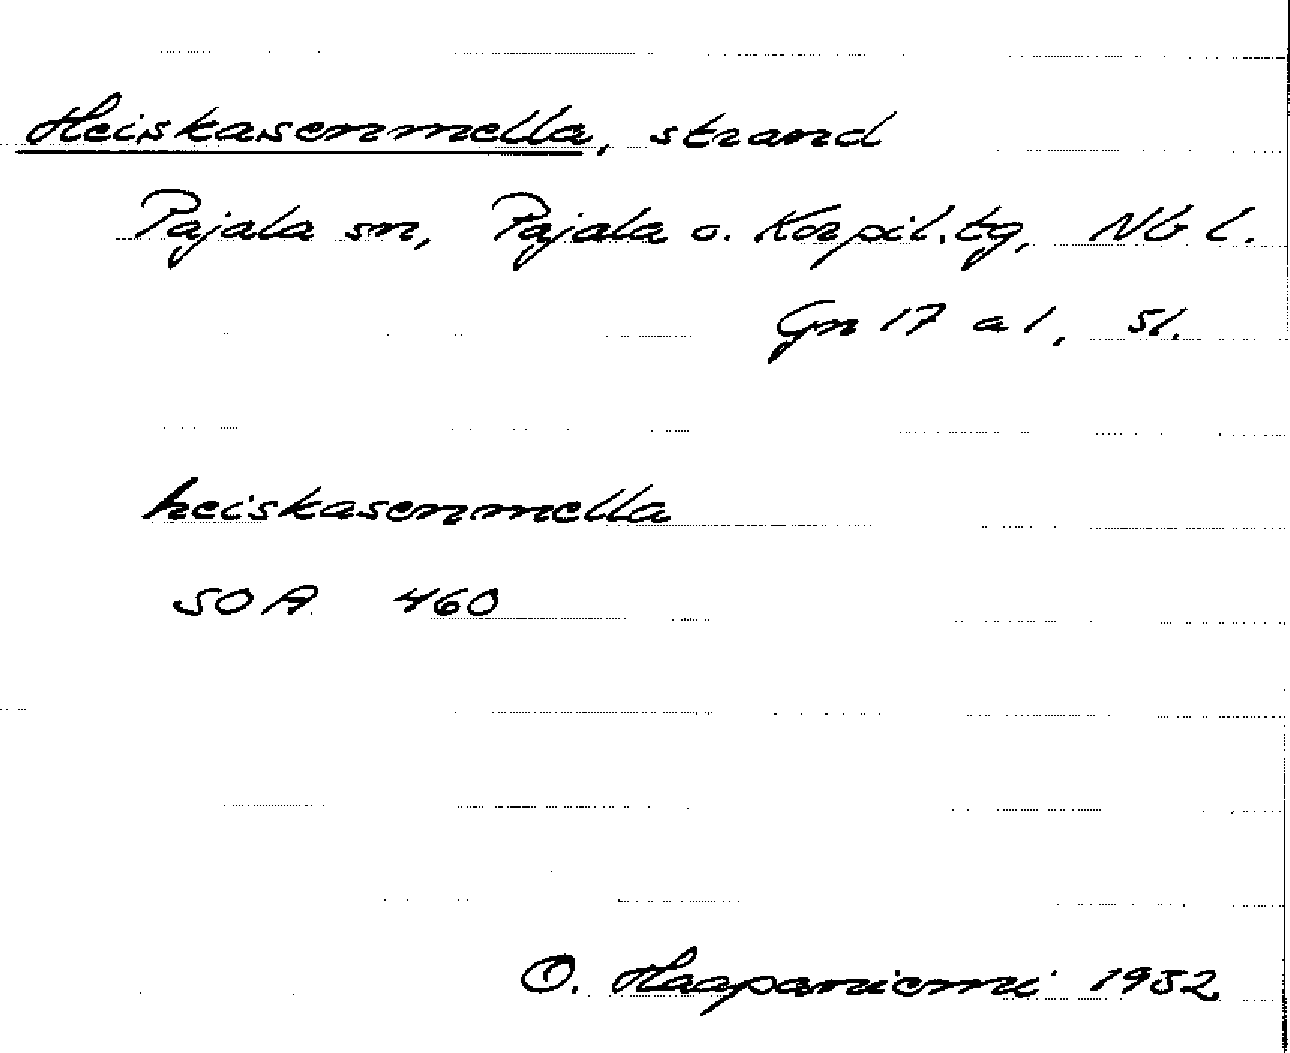 Heiskasenmella, strand
Pajala sn, Pajala o. Korpil.tg, Nb l.
Gn 17 a 1, 51.
heiskasenmella
SOA 460
O. Haapaniemi 1952